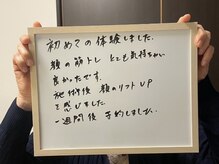 初めての体験しました。
顔の筋トレ とても気持ちが
良かったです。
施術後 顔のリフトUP
を感じました。
一週間後 予約しました。